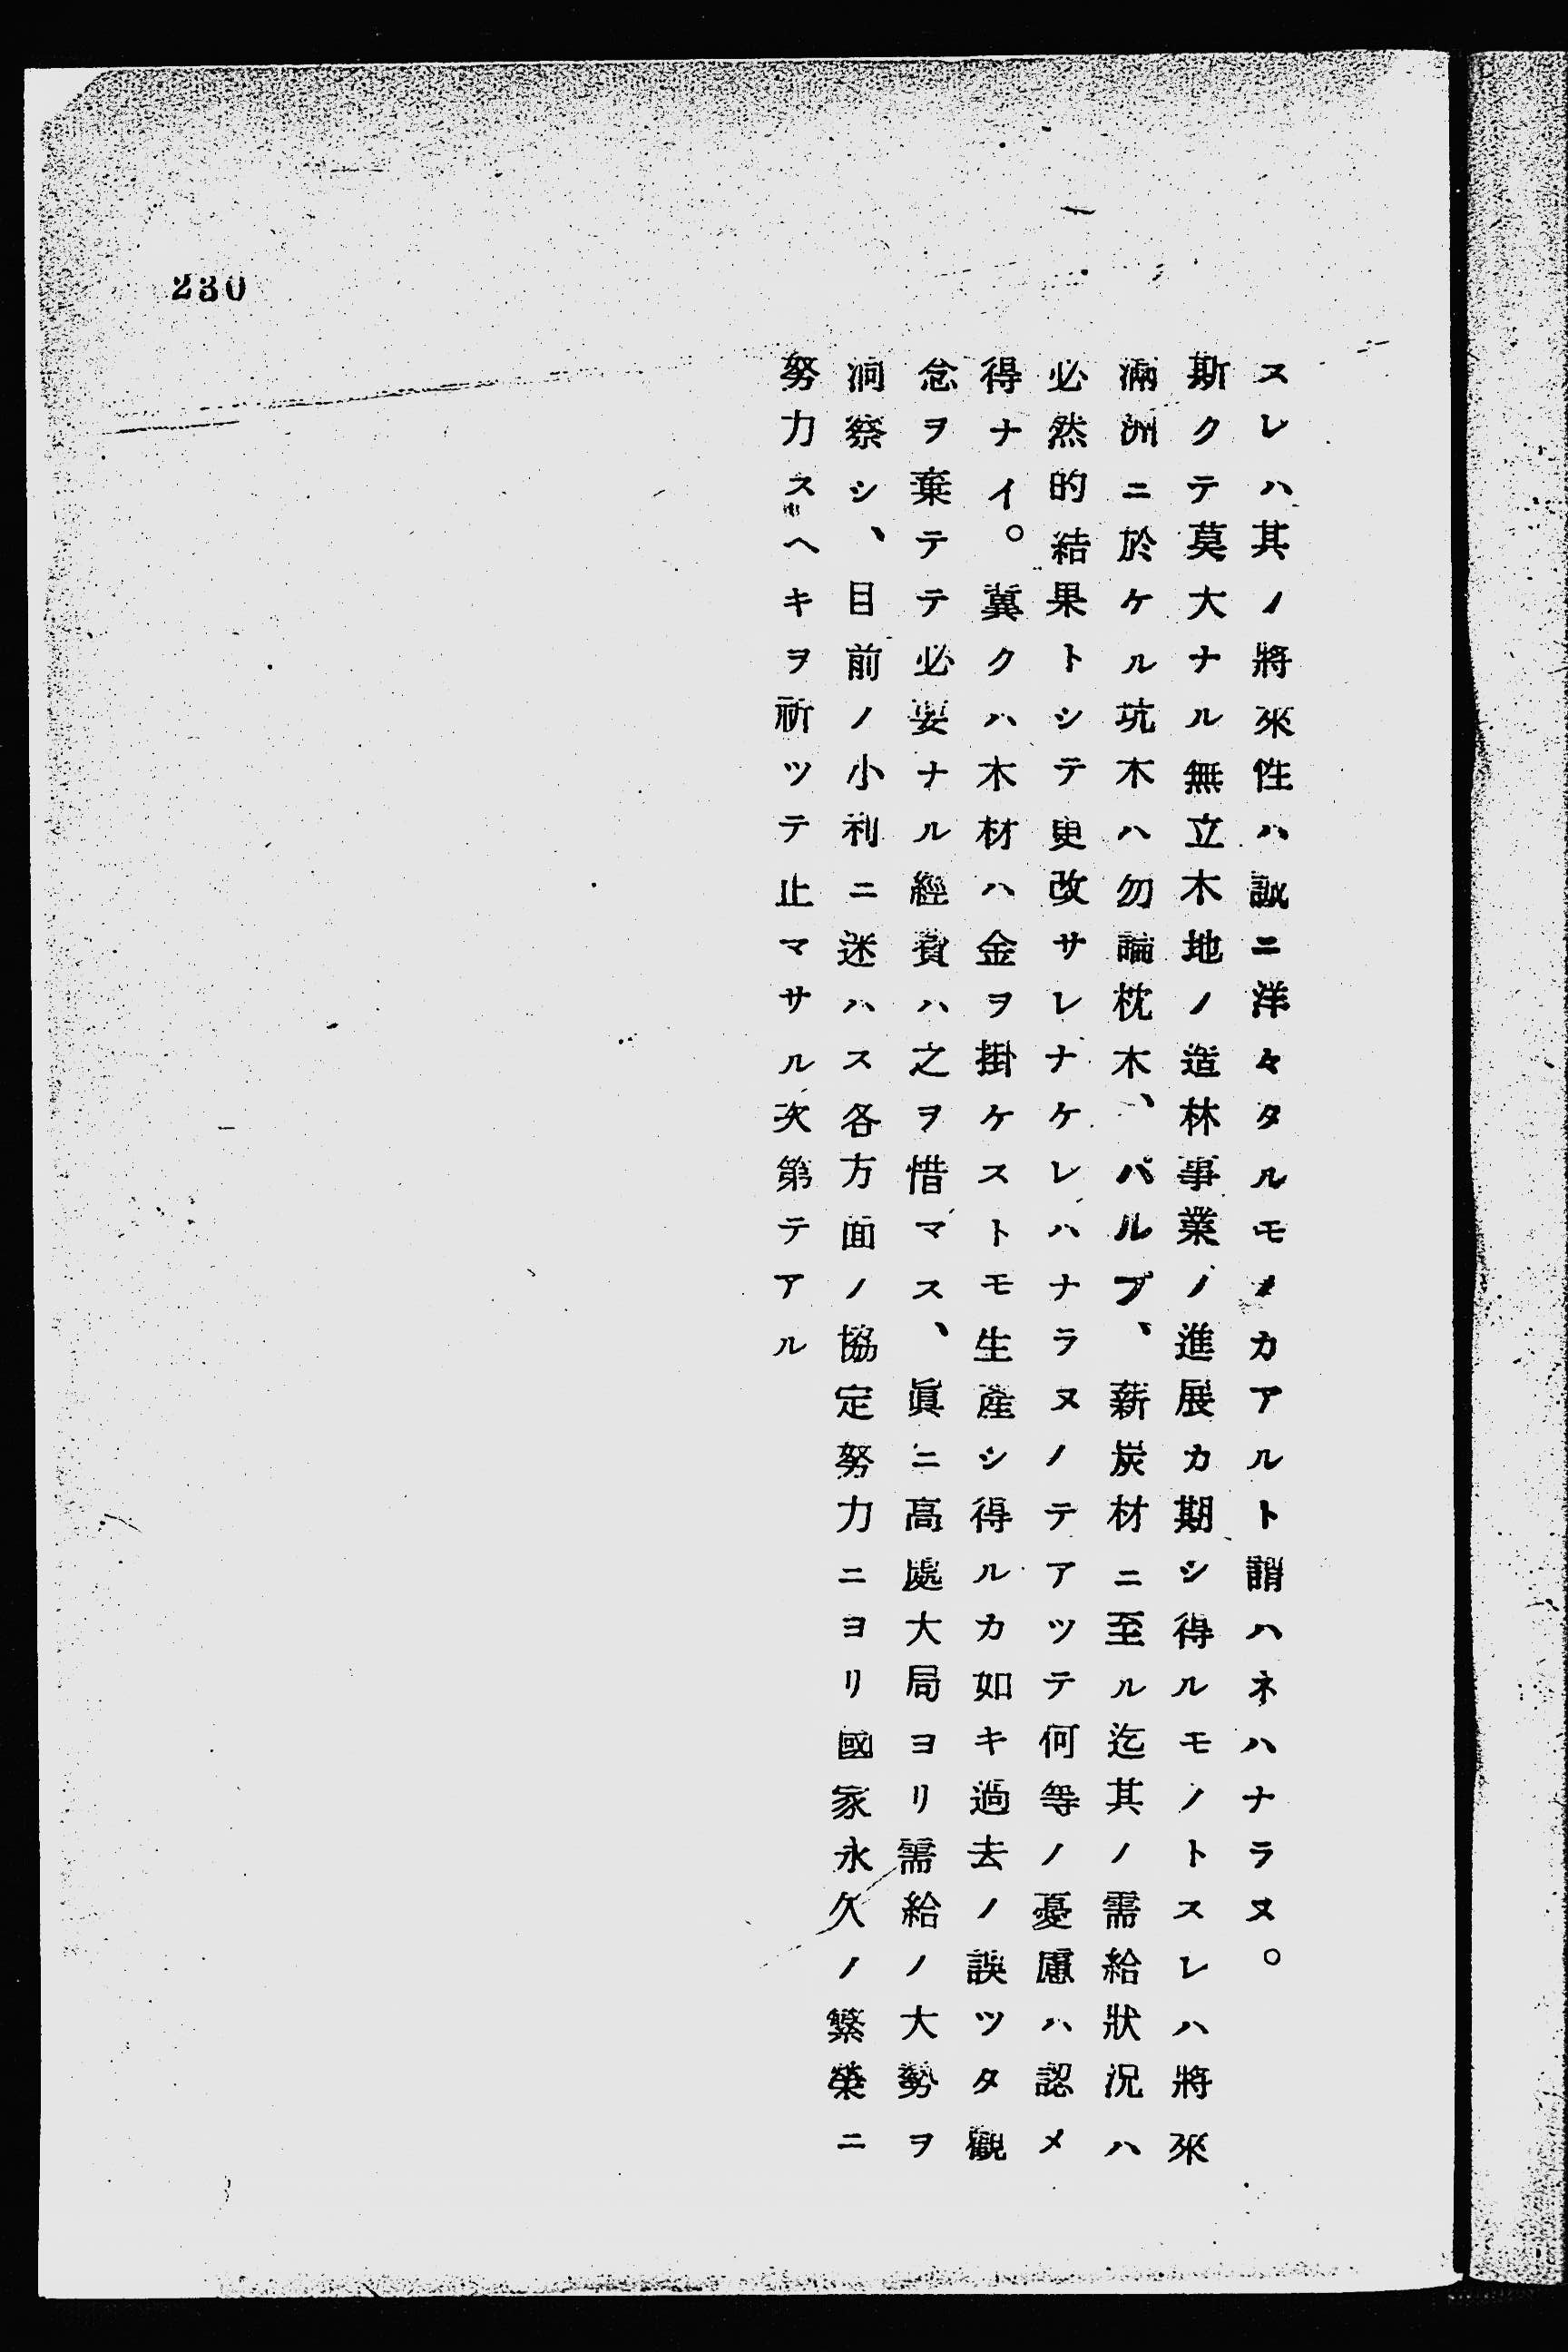 スレハ其ノ將來性ハ誠ニ洋々タルモノカアルト謂ハネハナラヌ。
斯クテ莫大ナル無立木地ノ造林事業ノ進展カ期シ得ルモノトスレハ將來
滿洲ニ於ケル坑木ハ勿論枕木、パルプ、薪炭材ニ至ル迄其ノ需給狀況ハ
必然的結果トシテ更改サレナケレハナラヌノテアツテ何等ノ憂慮ハ認メ
得ナイ。冀クハ木材ハ金ヲ掛ケストモ生產シ得ルカ如キ過去ノ誤ツタ觀
念ヲ棄テテ必要ナル經費ハ之ヲ惜マス、眞ニ高處大局ヨリ需給ノ大勢ヲ
洞察シ、目前ノ小利ニ迷ハス各方面ノ協定努力ニヨリ國家永久ノ繁榮ニ
努力スヘキヲ祈ツテ止マサル次第テアル
230